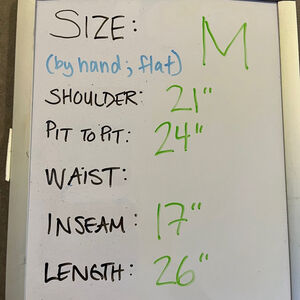 SIZE: M
(by hand; flat)
SHOULDER: 21"
PIT TO PIT: 24"
WAIST:
INSEAM: 17"
LENGTH: 26"